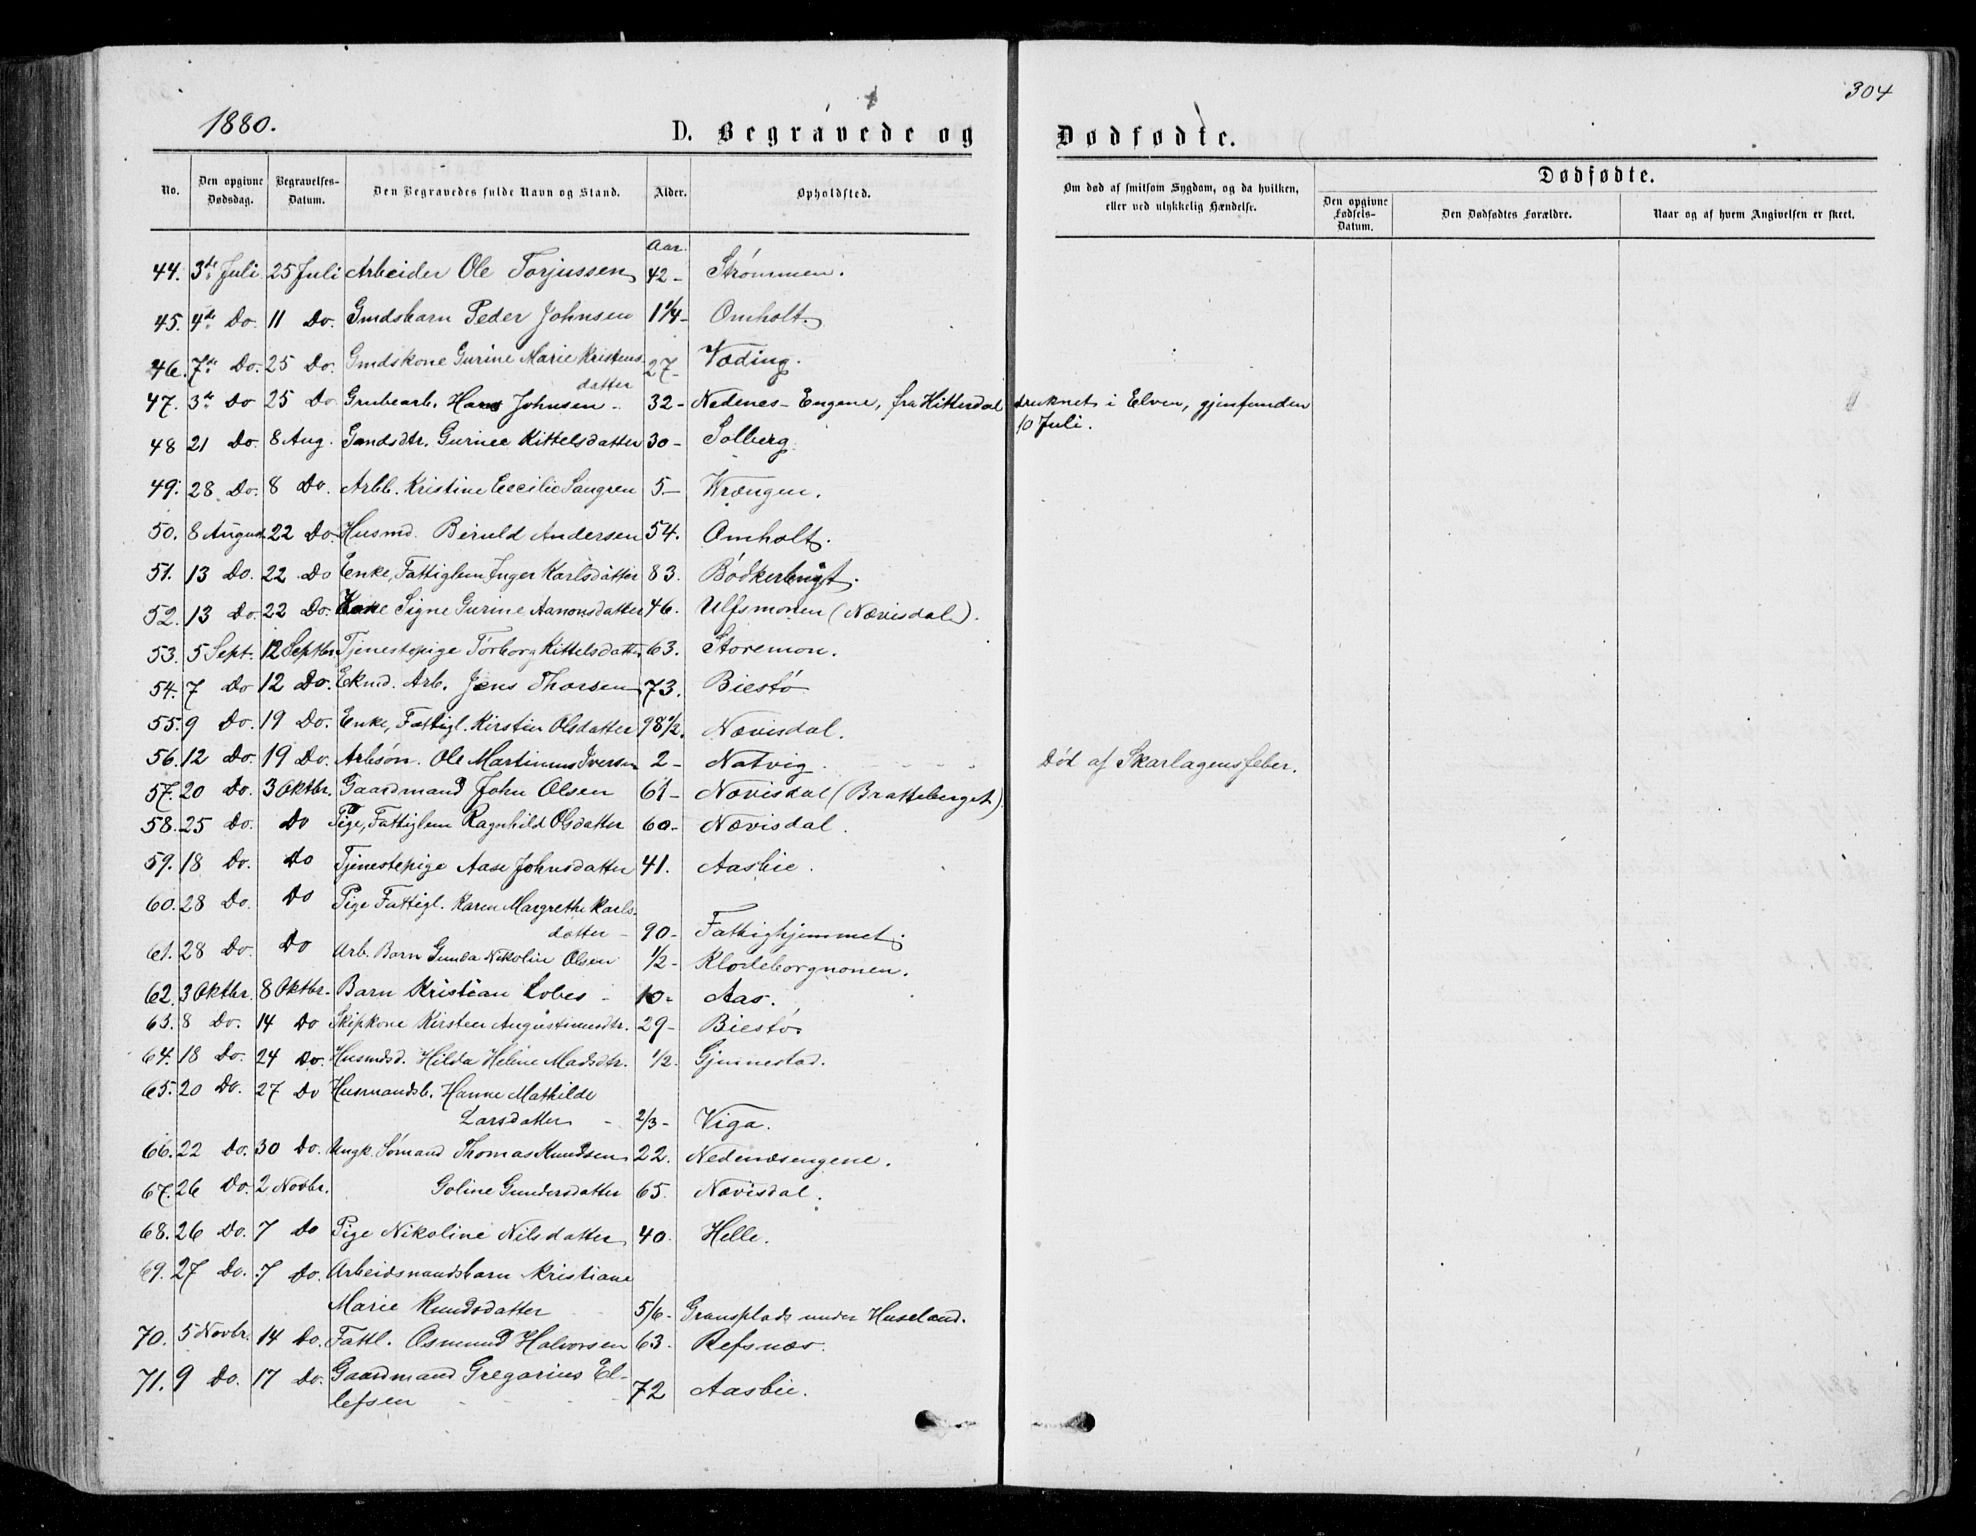 304
1880.
D. Begravede og
Dødfødte.
No. Den opgivne Dødsdag. Begravelses-Datum. Den Begravedes fulde Navn og Stand. Alder. Opholdsted.
Om død af smitsom Sygdom, og da hvilken, eller ved ulykkelig Hændelse. Dødfødte. Den opgivne Fødsels-Datum. Den Dødfødtes Forældre. Naar og af hvem Angivelsen er skeet.
Aar.
44. 3de Juli. 25 Juli Arbeider Ole Torjussen 42 - Strømmen.
45. 4de Do. 11 Do. Gmdsbarn Peder Johnsen 1 1/4 - Omholt.
46. 7de Do. 25 Do. Gmdskone Gurine Marie Kristens
datter 27 - Væding.
47. 3de Do 25 Do Grubearb. Hans Johnsen - 32 - Nedenes-Engene, fra Hitterdal druknet i Elven, gjenfunden
10 Juli.
48 21 Do. 8 Aug. Gmdsdtr. Gurine Kittelsdatter 30 - Solberg.
49. 28 Do. 8 Do. Arbb. Kristine Cecilie Sangren 5 - Krængen.
50. 8 August. 22 Do. Husmd. Beruld Andersen 54. Omholt.
51. 13 Do. 22 Do Enke, Fattiglem Inger Karlsdatter 83. Bødkerbugt.
52. 13 Do. 22 Do. Kone Signe Gurine Aanonsdatter 46. Ulfsmonen (Nævisdal).
53. 5 Sept. 12 Septbr. Tjenestepige Torborg Kittelsdatter 63. Storemon.
54. 7 Do 12 Do. Ekmd. Arb. Jens Thorsen 73. Biestø
55. 9 Do. 19 Do. Enke, Fattigl. Kirsten Olsdatter 98 1/2. Nævisdal.
56. 12 Do. 19 Do. Arbsøn. Ole Martinus Iversen 2 - Natvig. Død af Skarlagensfeber.
57. 20 Do. 3 Oktbr. Gaardmand John Olsen 61 - Nævisdal (Bratteberget)
58. 25 Do. Do Pige, Fattiglem Ragnhild Olsdatter 60 - Nævisdal.
59. 18 Do. Do Tjenestepige Aase Johnsdatter 41. Aasbie.
60. 28 Do. Do Pige Fattigl. Karen Margrethe Karls-
datter - 90 - Fattighjemmet.
61. 28 Do. Do Arb. Barn Gunda Nikoline Olsen 1/2 - Klodeborgmonen.
62. 3 Oktbr. 8 Oktbr. Barn Kristian Lobes - 10 - Aas.
63. 8 Do. 14 Do Skipkone Kirsten Augustinusdtr. 29 - Biestø
64. 18 Do. 24 Do. Husmdsd. Hilda Heline Madsdtr. 1/2. Gjennestad.
65. 20 Do. 27 Do Husmandsb. Hanne Mathilde
Larsdatter - 2/3 - Viga.
66. 22 Do. 30 Do. Ungk. Sømand Thomas Knudsen 22. Nedenæsengene.
67. 26 Do. 2 Novbr. Goline Gundersdatter 65. Nævisdal.
68. 26 Do. 7 Do Pige Nikoline Nilsdatter 40. Helle.
69. 27 Do. 7 Do. Arbeidsmandsbarn Kristiane
Marie Knudsdatter 5/6 - Gransplads under Huseland.
70. 5 Novbr. 14 Do. Fattl. Osmund Halvorsen 63. Refsnæs.
71. 9 Do. 17 Do. Gaardmand Gregarius El-
lefsen - 72 Aasbie.